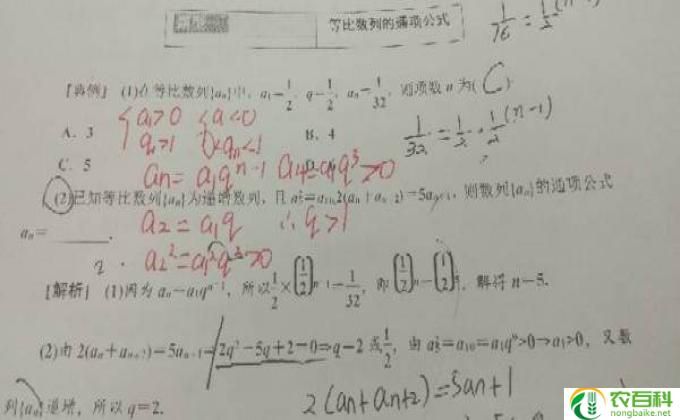 等比数列的通项公式
1/16 = 1/2^(n-1)
【典例】 (1)在等比数列{aₙ}中，a₁=1/2，q=1/2，aₙ=1/32，则项数 n 为( C )
{ a₁>0 { a<0
A. 3
q>1 0<qₙ<1
B. 4
1/32 = 1/2 · 1/2^(n-1)
C. 5
aₙ = a₁qⁿ⁻¹ a₄=a₁q³>0
(2)已知等比数列{aₙ}为递增数列，且 a₅²=a₁₀,2(aₙ+aₙ₊₂)=5aₙ₊₁，则数列{aₙ}的通项公式
aₙ=____.
a₂=a₁q ∴q>1
a₂²=a₁²q²>0
【解析】 (1)因为 aₙ=a₁qⁿ⁻¹，所以1/2×(1/2)ⁿ⁻¹=1/32，即(1/2)ⁿ=(1/2)⁵，解得 n=5.
(2)由 2(aₙ+aₙ₊₂)=5aₙ₊₁⇒2q²-5q+2=0⇒q=2 或1/2，由 a₅²=a₁₀=a₁q⁹>0⇒a₁>0，又数
列{aₙ}递增，所以 q=2.
2(an+an+2)=5an+1
农百科
nongbaike.net